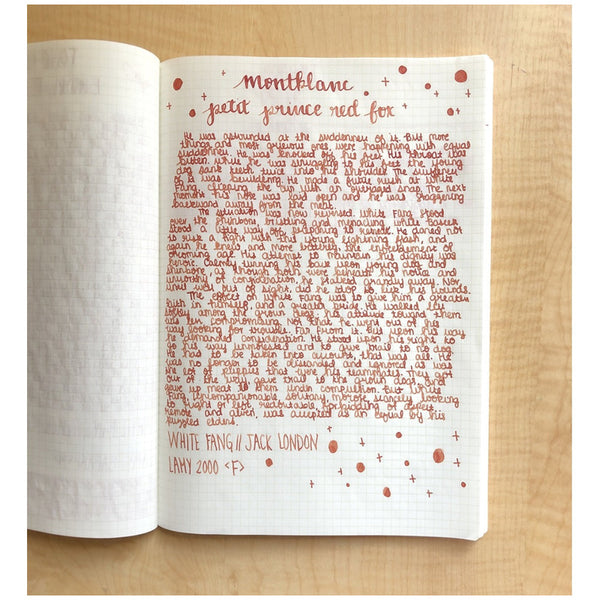 montblanc
petit prince red fox
He was astounded at the suddenness of it. But more
things, and most grievous ones, were happening with equal
suddenness. He was knocked off his feet. His throat was
bitten. While he was struggling to his feet the young
dog sank teeth twice into his shoulder. The swiftness
of it was bewildering. He made a futile rush at White
Fang, clipping the air with an outraged snap. The next
moment his nose was laid open and he was staggering
backward away from the meat.
The situation was now reversed. White Fang stood
over the shinbone, bristling and menacing while Baseek
stood a little way off, preparing to retreat. He dared not
to risk a fight with this young lightning flash, and
again he knew, and more bitterly, the enfeeblement of
oncoming age. His attempt to maintain his dignity was
heroic. Calmly turning his back upon young dog and
shinbone, as though both were beneath his notice and
unworthy of consideration, he stalked grandly away. Nor
until well out of sight, did he stop to lick his wounds.
The effect on White Fang was to give him a greater
faith in himself, and a greater pride. He walked less
softly among the grown dogs; his attitude toward them
was less compromising. Not that he went out of his
way looking for trouble. Far from it. But upon his way
he demanded consideration. He stood upon his right to
go his way unmolested and to give trail to no dog.
He had to be taken into account, that was all. He
was no longer to be disregarded and ignored, as was
the lot of puppies that were his teammates. They got
out of the way, gave trail to the grown dogs, and
gave up meat to them under compulsion. But White
Fang, uncompanionable, solitary, morose, scarcely looking
to right or left, redoubtable, forbidding of aspect,
remote and alien, was accepted as an equal by his
puzzled elders.
WHITE FANG // JACK LONDON
LAMY 2000 <F>